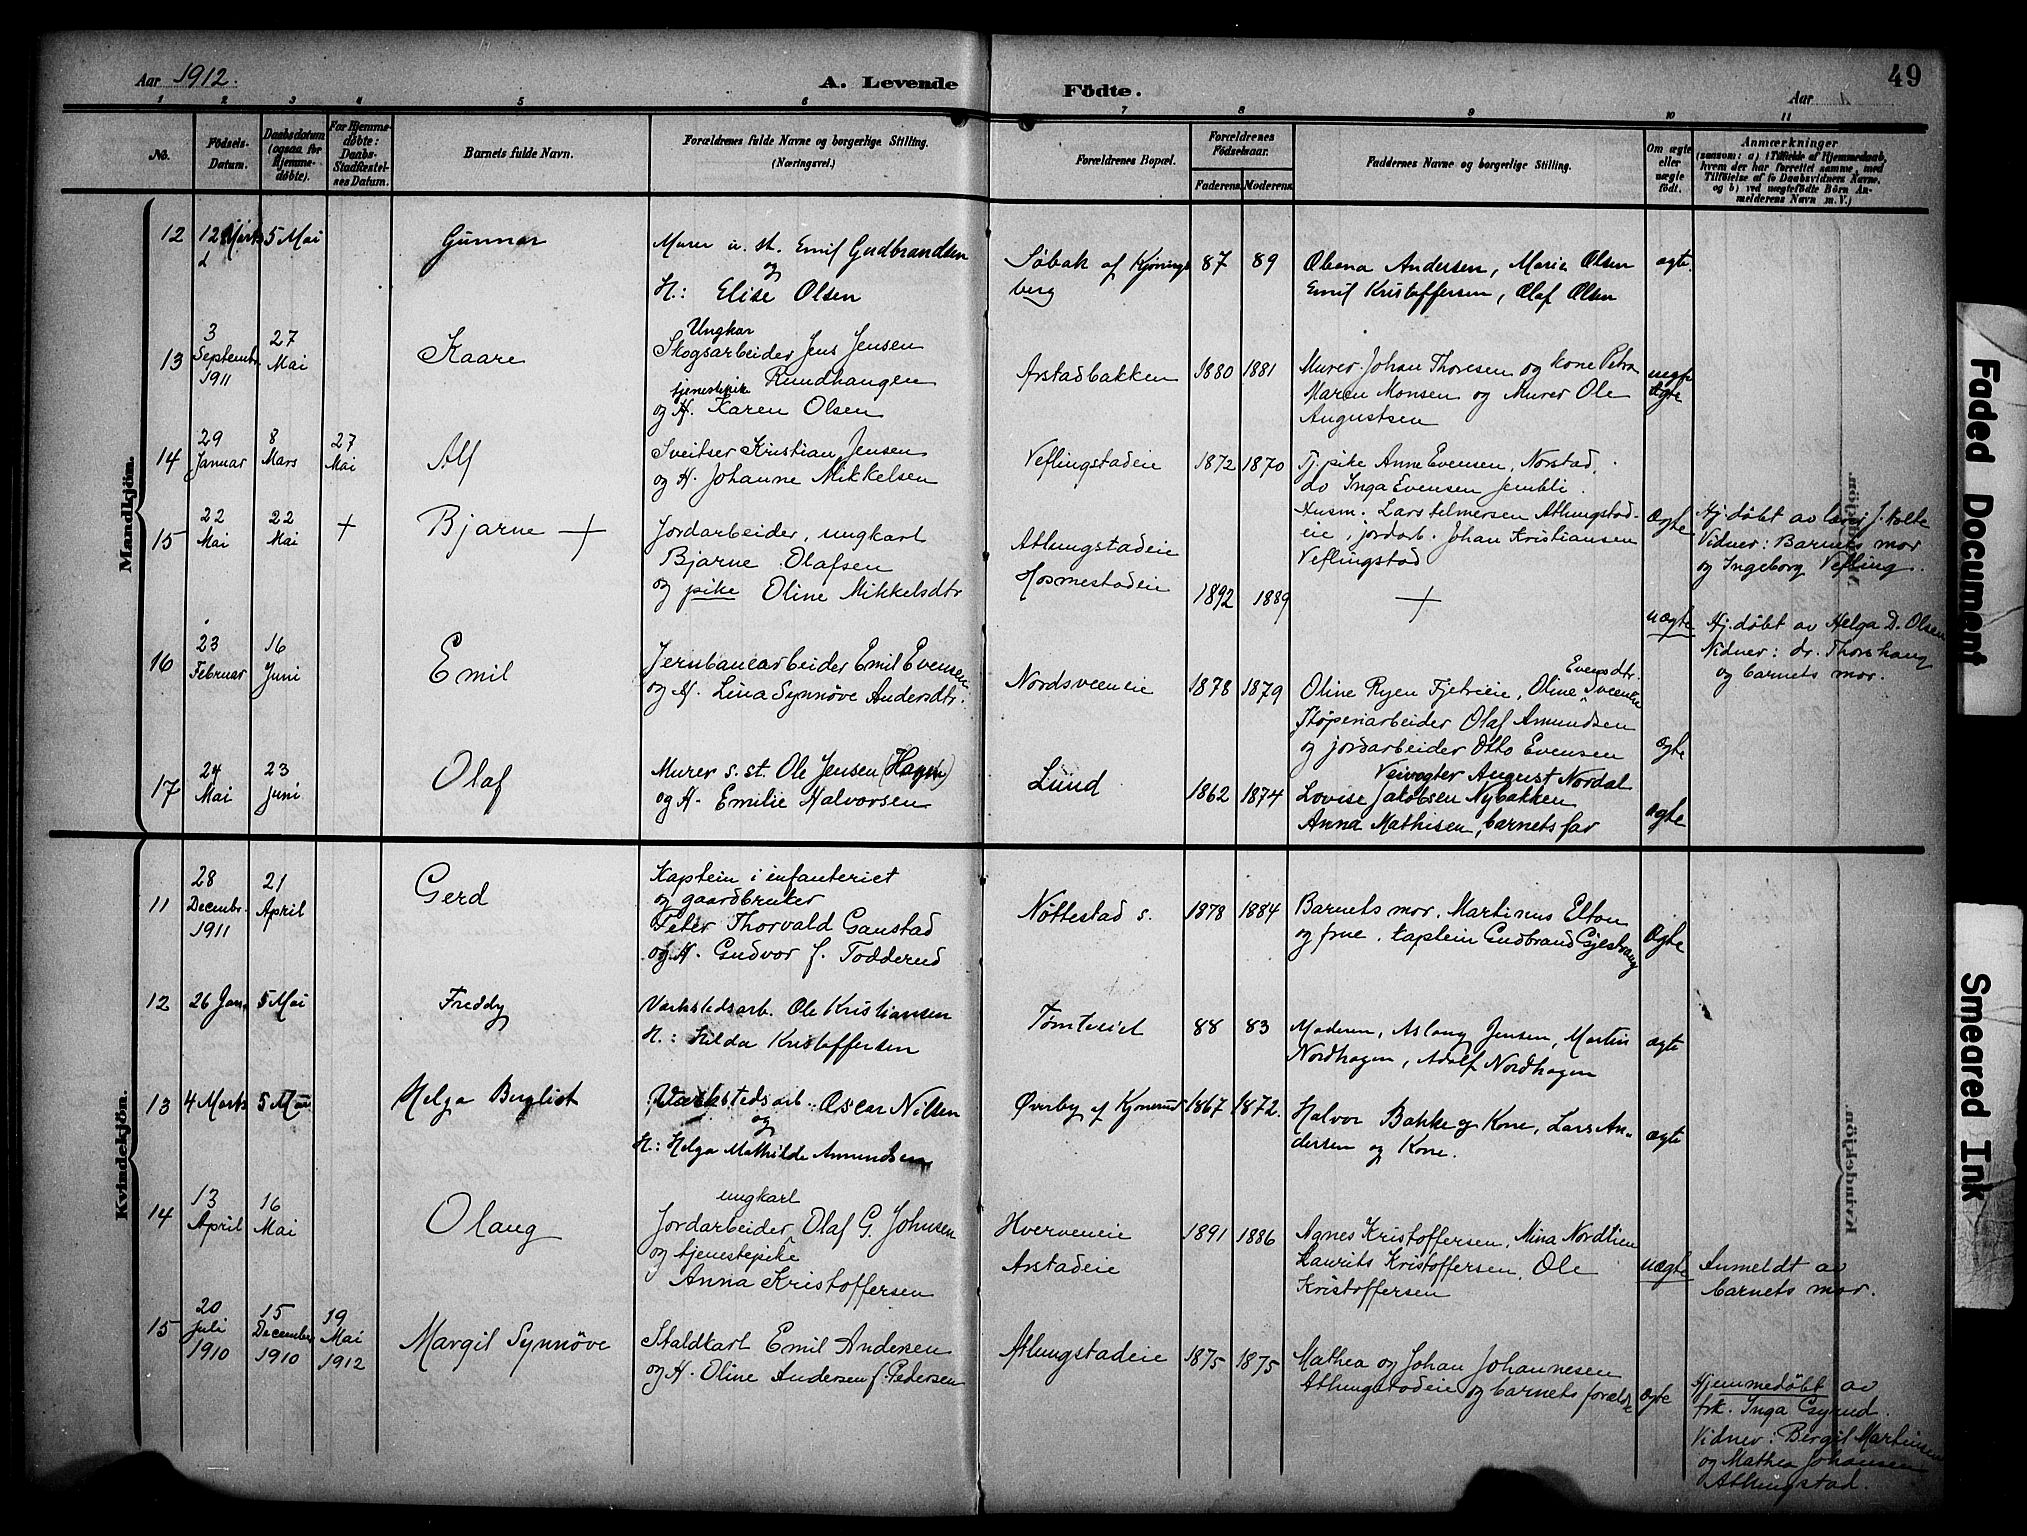 Aar 1912.
A. Levende Fødte.
Aar
49
1 2 3 4 5 6 7 8 9 10 11
No.
Fødsels-Datum.
Daabsdatum (ogsaa for Hjemme-døbte).
For Hjemme-døbte: Daabs-Stadfæstel-ses Datum.
Barnets fulde Navn.
Forældrenes fulde Navne og borgerlige Stilling. (Næringsvei.)
Forældrenes Bopæl.
Forældrenes Fødselsaar.
Faderens. Moderens.
Faddernes Navne og borgerlig Stilling.
Om ægte eller uægte født.
Anmærkninger
(saasom: a) i Tilfælde af Hjemmedaab, hvem der har forrettet samme, med Tilføielse af to Daabsvidners Navne, og b) ved uægtefødte Børn An-melderens Navn m. V.)
Mandkjøn.
12 12 Marts 5 Mai
Gunnar
Murer u. st. Emil Gudbrandsen
og
H: Elise Olsen
Søbak af Kjønings
berg
87 89
Oleana Andersen, Marie Olsen
Emil Kristoffersen, Olaf Olsen
ægte
13
3
Septembr
1911
27
Mai
Kaare
Ungkar
Skogsarbeider Jens Jensen
Rundhaugen
tjenestepike
og H. Karen Olsen
Arstadbakken
1880 1881
Murer Johan Thoresen og kone Petra
Maren Monsen og Murer Ole
Augustsen
uægte
14
29
Januar
8
Mars
27
Mai
Alf
Sveitser Kristian Jensen
og H. Johanne Mikkelsen
Veflingstadeie
1872 1870
Tj. pike Anne Evensen, Norstad,
do Inga Evensen Jembli.
Husm. Lars Helmersen Atlungstad-
eie, jordarb. Johan Kristiansen
Veflingstad
Ægte
Hj. døbt av lærer J. Holte
Vidner: Barnets mor
og Ingeborg Vefling.
15
22
Mai
22
Mai
+
Bjarne +
Jordarbeider, ungkarl
Bjarne Olafsen
og pike Oline Mikkelsdtr
Atlungstadeie
Hosmestadeie
1892 1889
+
uægte
Hj. døbt av Helga D. Olsen
Vidner: dr. Thorshaug
og barnets mor.
16
23
Februar
16
Juni
Emil
Jernbanearbeider Emil Evensen
og H. Lina Synnøve Andersdtr.
Nordsveeneie
1878 1879
Evensdtr.
Oline Ryen Fjetreeie, Oline Sveeneie
Støperiarbeider Olaf Amundsen
og jordarbeider Otto Evensen
ægte
17
24
Mai
23
Juni
Olaf
Murer s. st. Ole Jensen (Hagen)
og H. Emilie Halvorsen
Lund
1862 1874
Veivogter August Nordal
Lovise Jakobsen Nybakken
Anna Mathisen, barnets far
ægte
Kvindekjøn.
11
28
Decembr.
1911
21
April
Gerd
Kaptein i infanteriet
og gaardbruker
Peter Thorvald Gaustad
og H. Gudvor f. Todderud
Nøttestad s.
1878 1884
Barnets mor. Martinus Elton
og frue. Kaptein Gudbrand Gjestvang
Ægte
12 26 Jan. 5 Mai
Freddy
Værkstedsarb. Ole Kristiansen
H.: Hilda Kristoffersen
Tømteriet
88 83
Moderen, Aslaug Jensen, Martin
Nordhagen, Adolf Nordhagen
ægte
13 4 Marts 5 Mai
Helga Bergliot
Værkstedsarb. Oscar Nilsen
og
H.: Helga Mathilde Amundsen
Øverby af Kjonerud
1867 1872.
Halvor Bakke og Kone, Lars An-
dersen og Kone.
ægte
14
13
April
16
Mai
Olaug
ungkarl
Jordarbeider, Olaf G. Johnsen
og tjenestepike
Anna Kristoffersen
Hverveneie
Arstadeie
1891 1886
Agnes Kristoffersen, Mina Nordlien
Laurits Kristoffersen, Ole
Kristoffersen
uægte
Anmeldt av
barnets mor.
15
20
Juli
1910
15
December
1910
19
Mai
1912
Margit Synnøve
Staldkarl Emil Andersen
og H. Oline Andersen f. Pedersen
Atlungstadeie
1875 1875
Mathea og Johan Johannesen
Atlungstadeie og barnets foreldre
ægte
Hjemmedøbt av
frk. Inga Gyrud.
Vidner: Bergit Martinsen
og Mathea Johansen
Atlungstad.
Faded Document
Smeared Ink